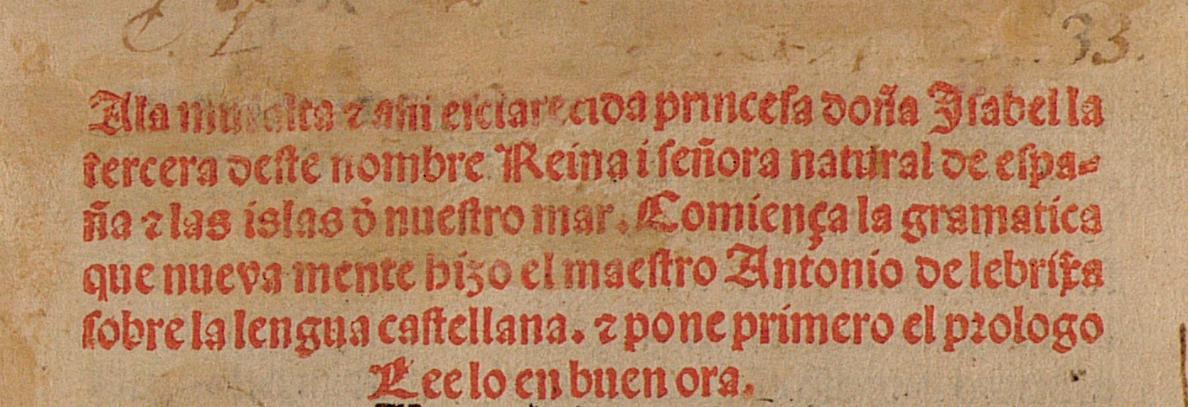 33.
A la mui alta ⁊ assi esclarecida princesa doña Isabel la
tercera deste nombre Reina i señora natural de espa-
ña ⁊ las islas ð nuestro mar. Comiença la gramatica
que nueva mente hizo el maestro Antonio de lebrixa
sobre la lengua castellana. ⁊ pone primero el prologo
Lee lo en buen ora.